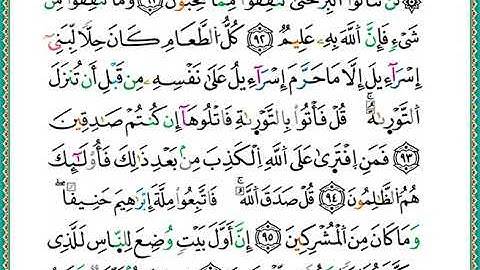 لَن تَنَالُوا۟ ٱلْبِرَّ حَتَّىٰ تُنفِقُوا۟ مِمَّا تُحِبُّونَ ۚ وَمَا تُنفِقُوا۟ مِن
شَىْءٍ فَإِنَّ ٱللَّهَ بِهِۦ عَلِيمٌ ﴿٩٢﴾ كُلُّ ٱلطَّعَامِ كَانَ حِلًّا لِّبَنِىٓ
إِسْرَٰٓءِيلَ إِلَّا مَا حَرَّمَ إِسْرَٰٓءِيلُ عَلَىٰ نَفْسِهِۦ مِن قَبْلِ أَن تُنَزَّلَ
ٱلتَّوْرَىٰةُ ۗ قُلْ فَأْتُوا۟ بِٱلتَّوْرَىٰةِ فَٱتْلُوهَآ إِن كُنتُمْ صَٰدِقِينَ
﴿٩٣﴾ فَمَنِ ٱفْتَرَىٰ عَلَى ٱللَّهِ ٱلْكَذِبَ مِنۢ بَعْدِ ذَٰلِكَ فَأُو۟لَٰٓئِكَ
هُمُ ٱلظَّٰلِمُونَ ﴿٩٤﴾ قُلْ صَدَقَ ٱللَّهُ ۗ فَٱتَّبِعُوا۟ مِلَّةَ إِبْرَٰهِيمَ حَنِيفًا ۖ
وَمَا كَانَ مِنَ ٱلْمُشْرِكِينَ ﴿٩٥﴾ إِنَّ أَوَّلَ بَيْتٍ وُضِعَ لِلنَّاسِ لَلَّذِى